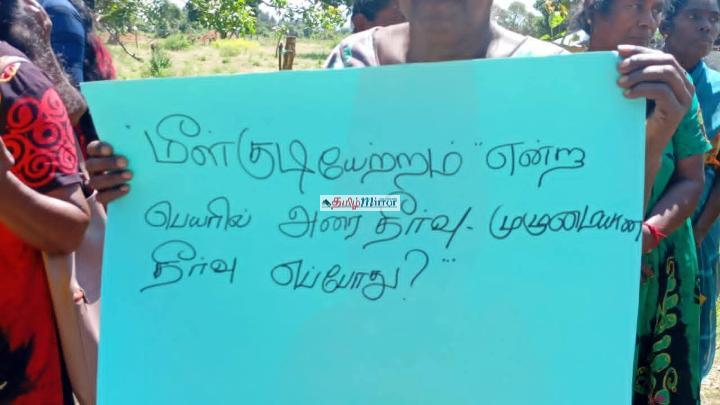 "மீள்குடியேற்றம்" என்ற
தமிழ்mirror
பெயரில் அரை தீர்வு - முழுமையான
தீர்வு எப்போது?"